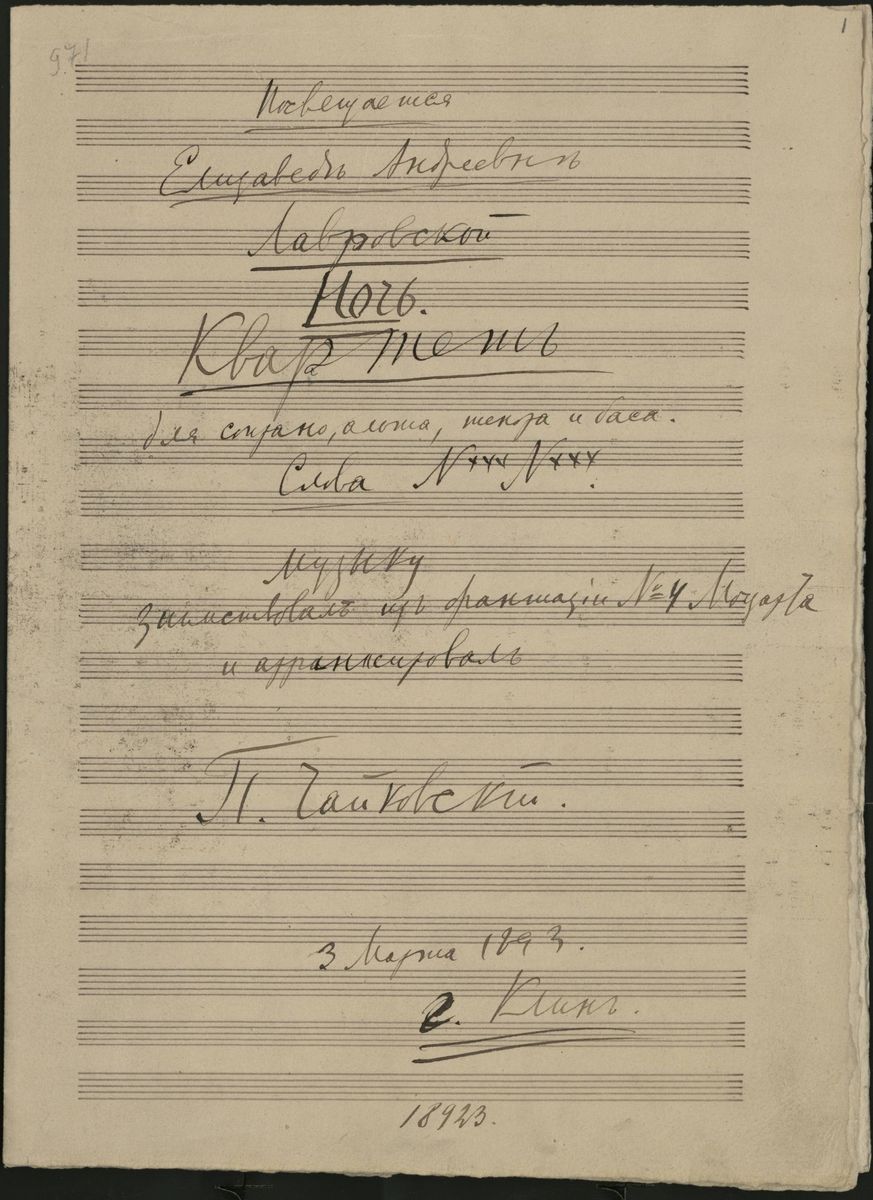 971
1
Посвещается
Елизаветѣ Андреевнѣ
Лавровской
Ночь.
Квартетъ
для сопрано, альта, тенора и баса.
Слова N*** N***.
Музыку
заимствовалъ изъ фантазiи № 4 Моцарта
и арранжировалъ
П. Чайковскiй.
3 Марта 1893.
г. Клинъ.
18923.